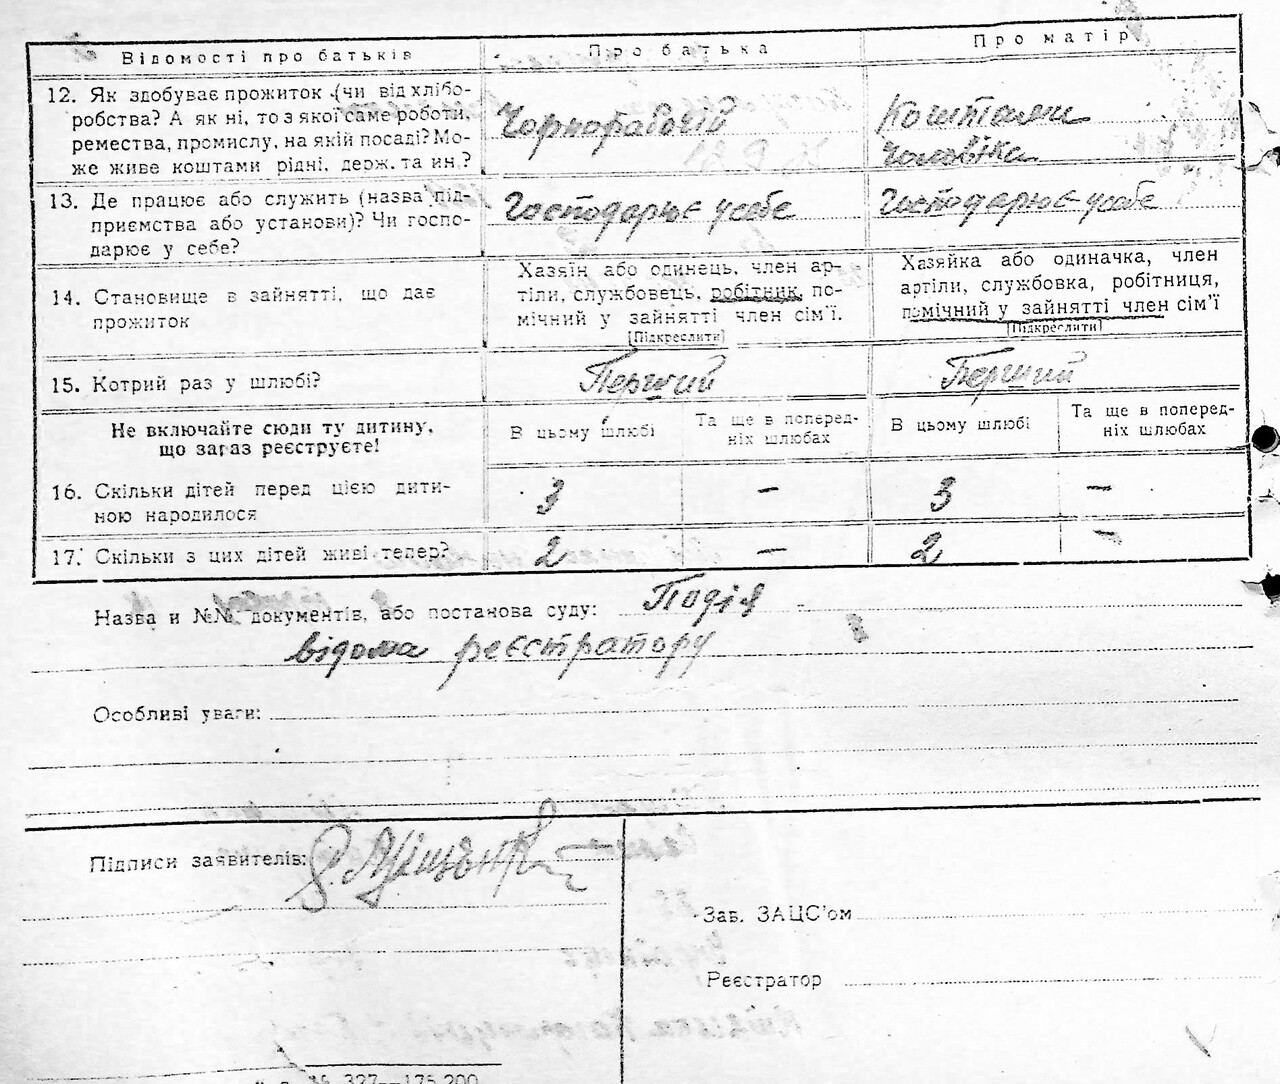 Відомості про батьків Про батька Про матір
12. Як здобуває прожиток (чи від хлібо-
робства? А як ні, то з якої саме роботи,
ремества, промислу, на якій посаді? Мо-
же живе коштами рідні, держ. та ин.?
Чорнорабочій
Коштами
чоловіка
13. Де працює або служить (назва під-
приємства або установи)? Чи госпо-
дарює у себе?
Господарює у себе
Господарює у себе
14. Становище в зайнятті, що дає
прожиток
Хазяїн або одинець, член ар-
тіли, службовець, робітник, по-
мічний у зайнятті член сім'ї.
[Підкреслити]
Хазяйка або одиначка, член
артіли, службовка, робітниця,
помічний у зайнятті член сім'ї
[Підкреслити]
15. Котрий раз у шлюбі?
Перший
Перший
Не включайте сюди ту дитину,
що зараз реєструєте!
В цьому шлюбі
Та ще в поперед-
ніх шлюбах
В цьому шлюбі
Та ще в поперед-
ніх шлюбах
16. Скільки дітей перед цією дити-
ною народилося
3 – 3 –
17. Скільки з цих дітей живі тепер?
2 – 2 –
Назва и №№ документів, або постанова суду: Подія
відома реєстратору
Особливі уваги:
Підписи заявителів:
Зав. ЗАЦС'ом
Реєстратор
327—175.200